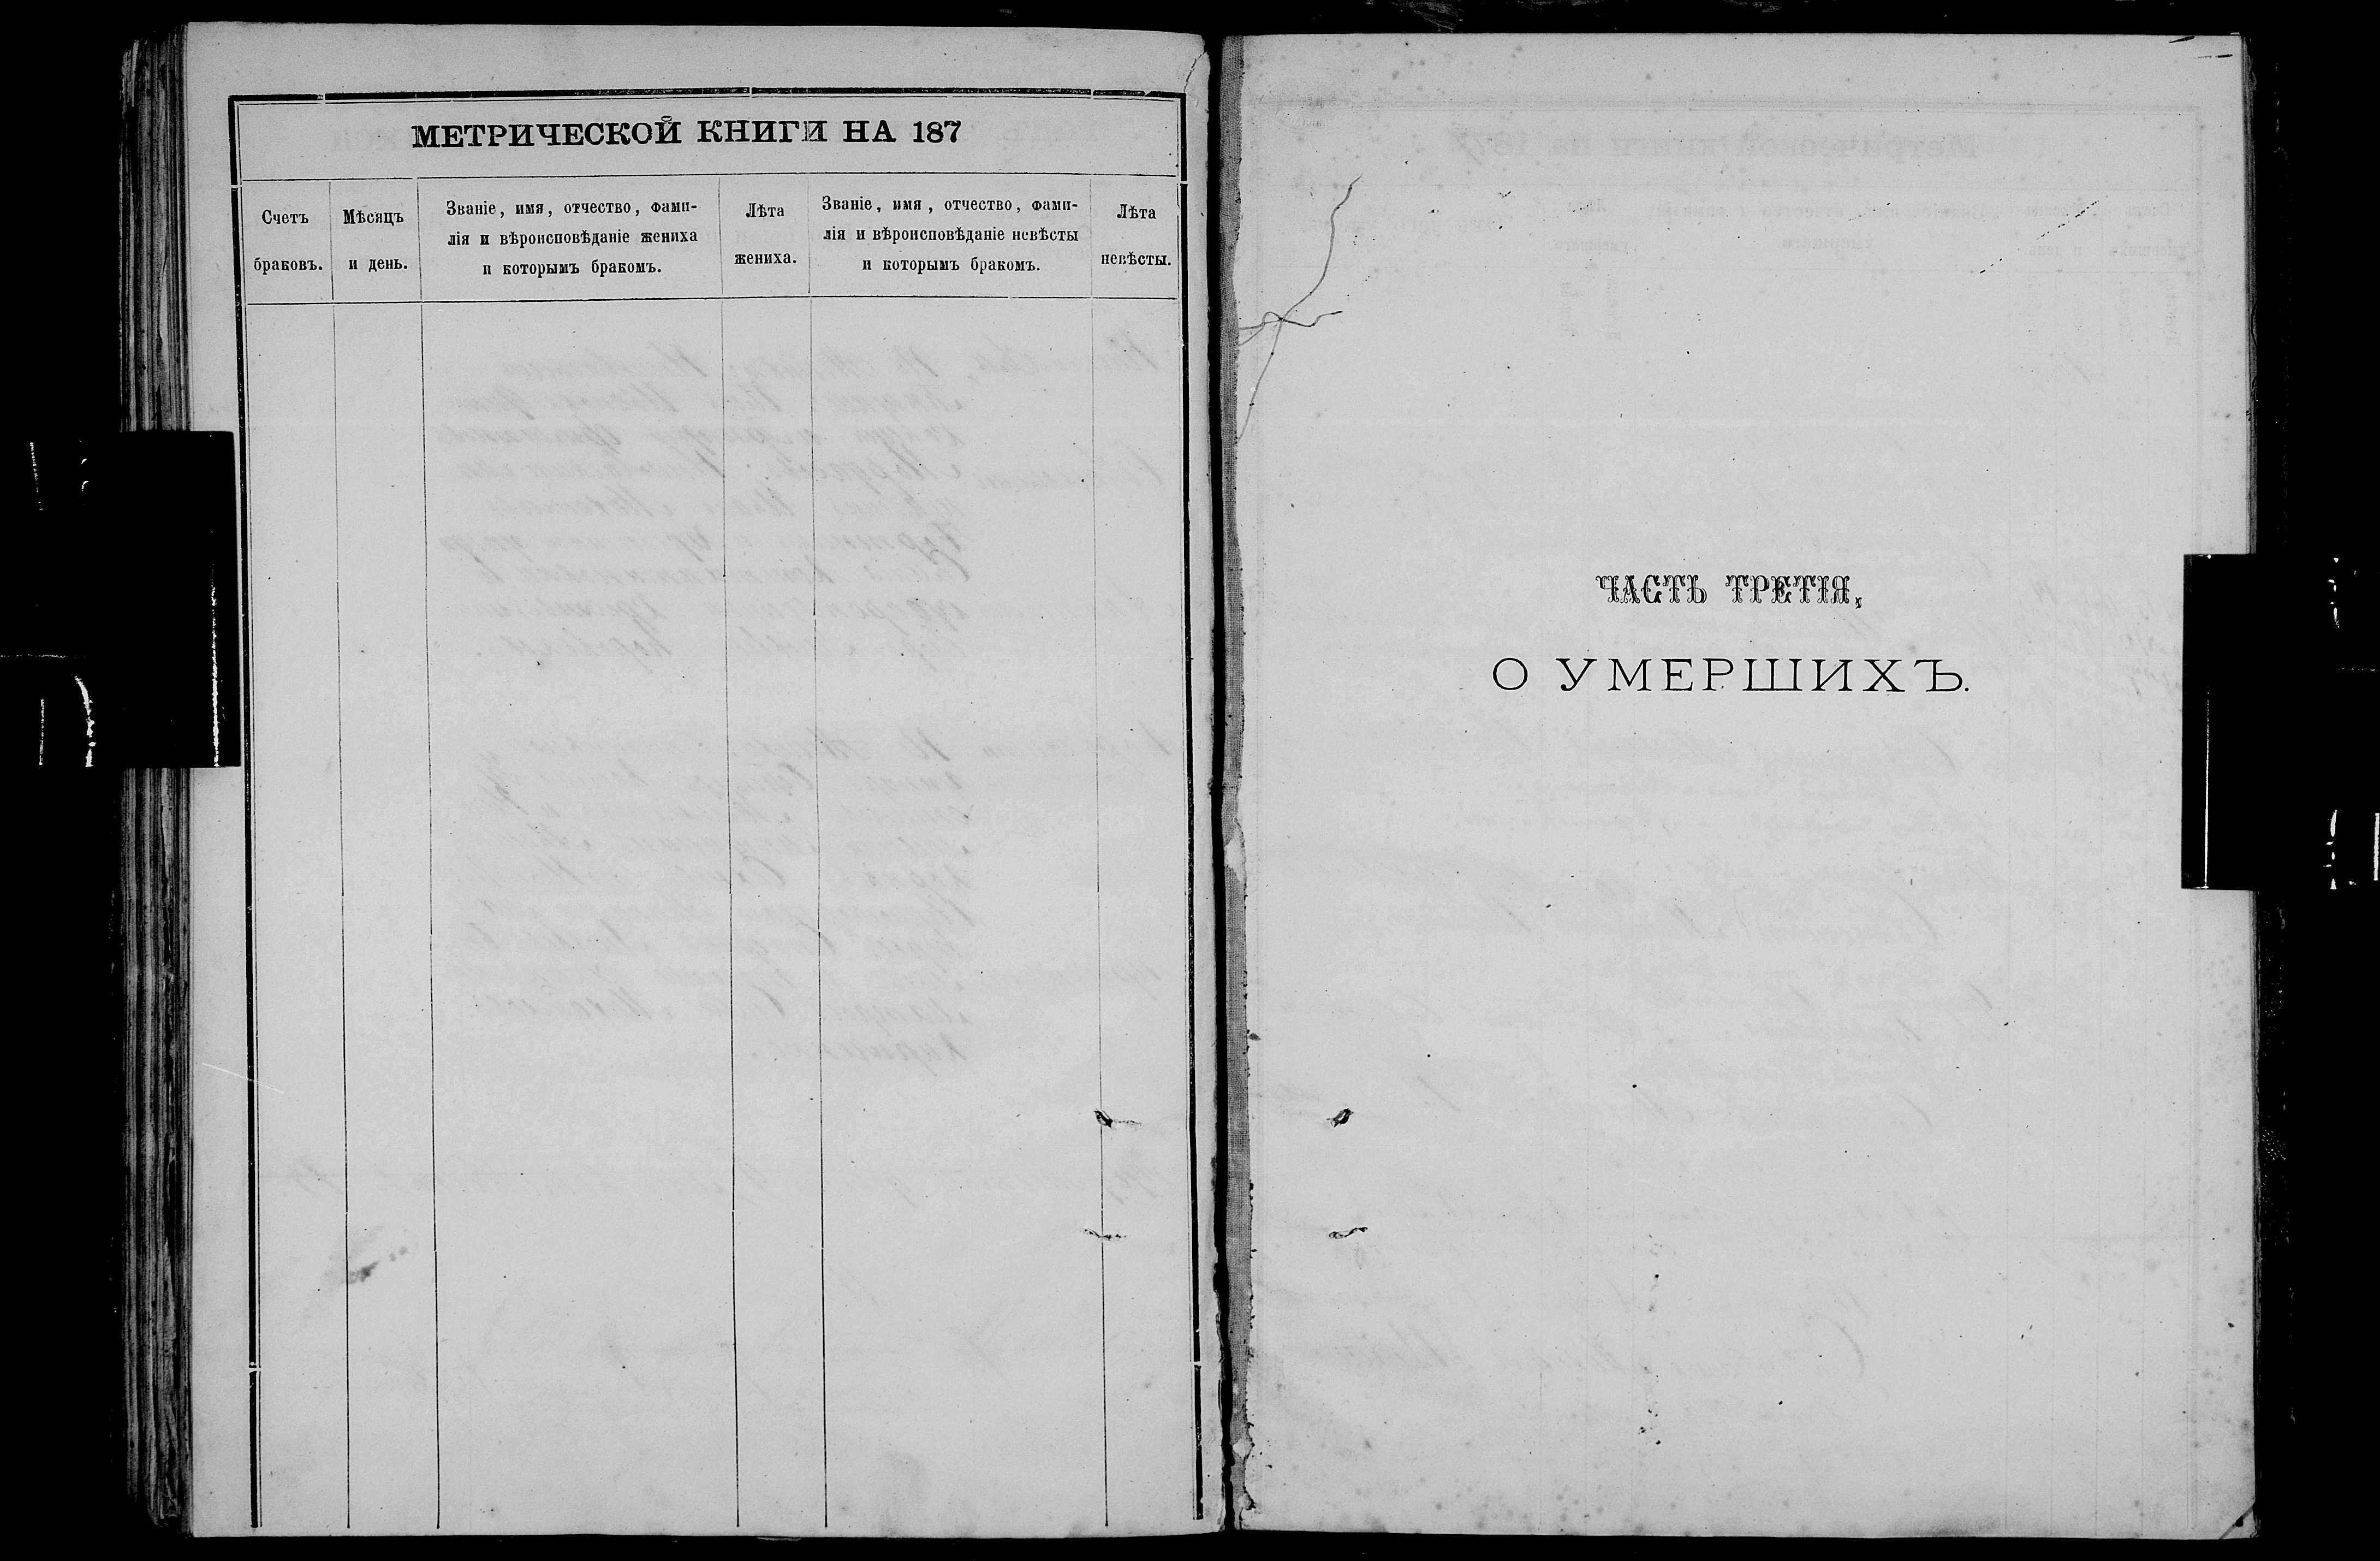 МЕТРИЧЕСКОЙ КНИГИ НА 187
Счетъ
браковъ.
Мѣсяцъ
и день.
Званіе, имя, отчество, фами-
лія и вѣроисповѣданіе жениха
и которымъ бракомъ.
Лѣта
жениха.
Званіе, имя, отчество, фами-
лія и вѣроисповѣданіе невѣсты
и которымъ бракомъ.
Лѣта
невѣсты.
ЧАСТЬ ТРЕТІЯ,
О УМЕРШИХЪ.